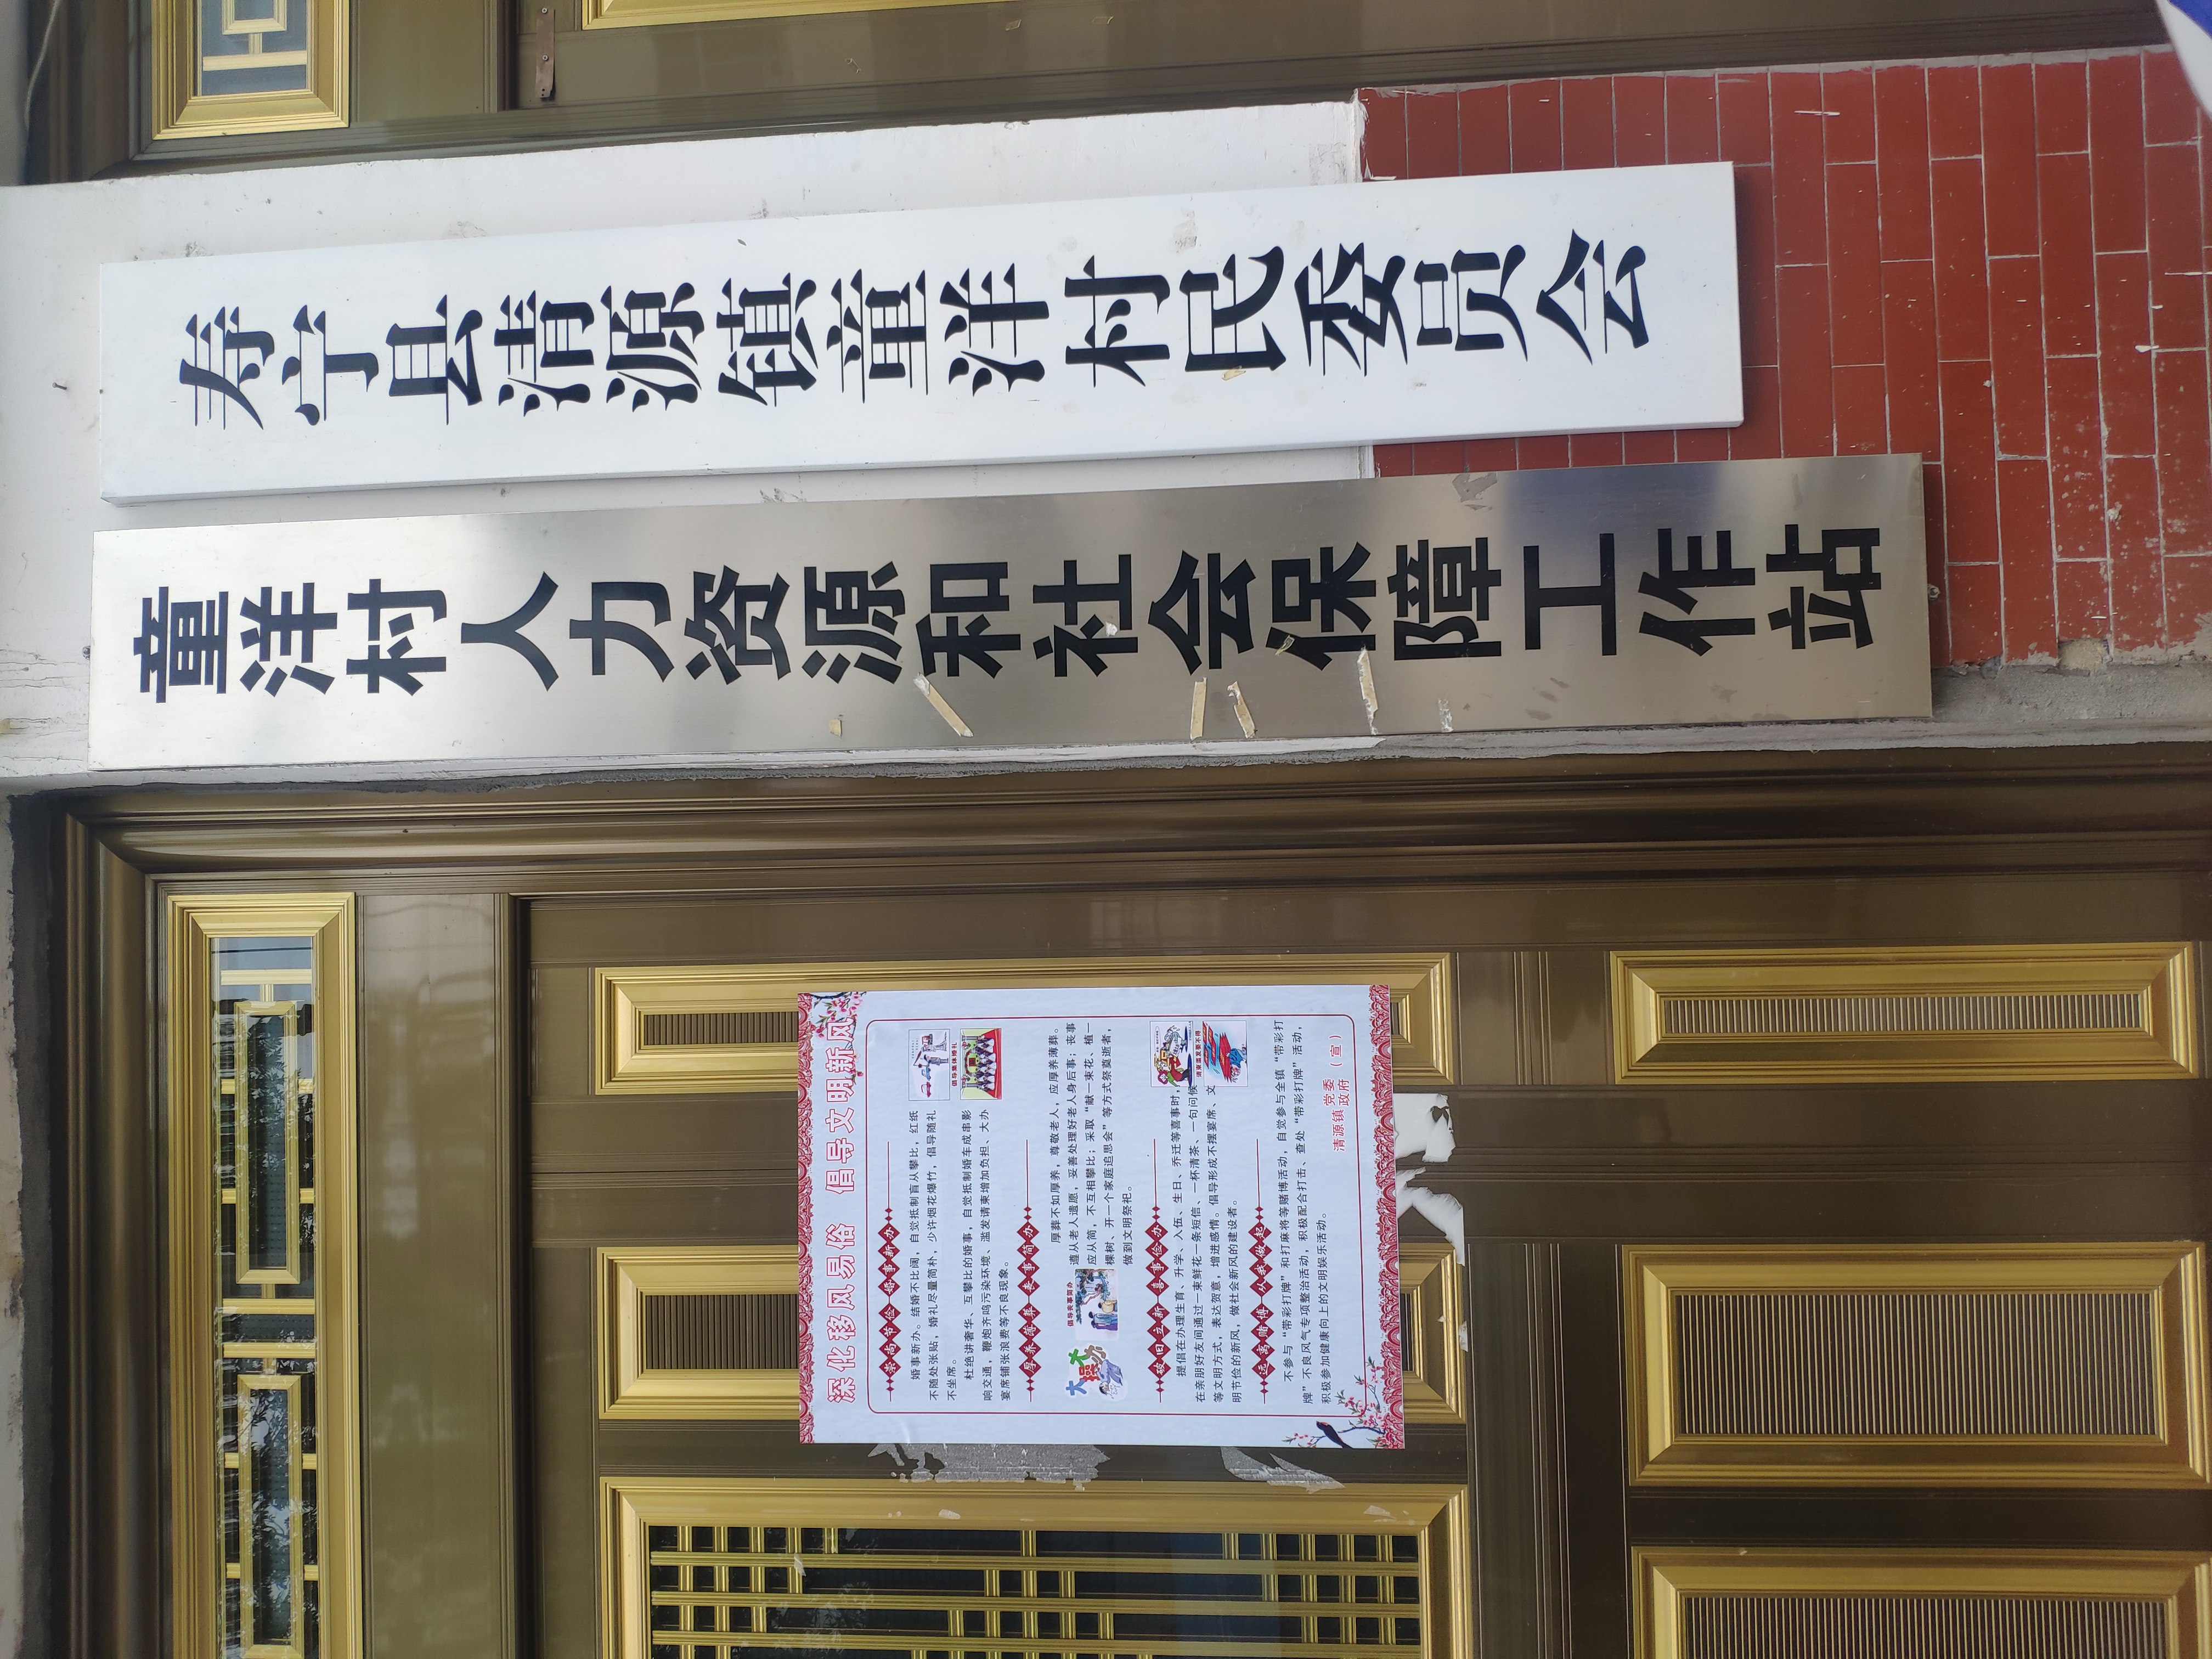 寿宁县清源镇童洋村民委员会
童洋村人力资源和社会保障工作站
深化移风易俗 倡导文明新风
崇尚节俭 婚事新办
婚事新办。结婚不比阔，自觉抵制盲从攀比，红纸
不随处张贴，婚礼尽量简朴，少许烟花爆竹，倡导随礼
不坐席。
杜绝讲奢华、互攀比的婚事，自觉抵制婚车成串影
响交通，鞭炮齐鸣污染环境、滥发请柬增加负担、大办
宴席铺张浪费等不良现象。
倡导集体婚礼
厚养薄葬 丧事简办
倡导丧事简办
厚葬不如厚养，尊敬老人，应厚养薄葬。
遵从老人遗愿，妥善处理好老人身后事；丧事
应从简，不互相攀比；采取“献一束花、植一
棵树、开一个家庭追思会”等方式祭奠逝者，
做到文明祭祀。
破旧立新 喜事俭办
提倡在办理生育、升学、入伍、生日、乔迁等喜事时，
在亲朋好友间通过一束鲜花一条短信、一杯清茶、一句问候
等文明方式，表达贺意，增进感情。倡导形成不摆宴席、文
明节俭的新风，做社会新风的建设者。
请柬滥发要不得
远离赌博 从我做起
不参与“带彩打牌”和打麻将等赌博活动，自觉参与全镇“带彩打
牌”不良风气专项整治活动，积极配合打击、查处“带彩打牌”活动，
积极参加健康向上的文明娱乐活动。
清源镇 党委 政府 （宣）